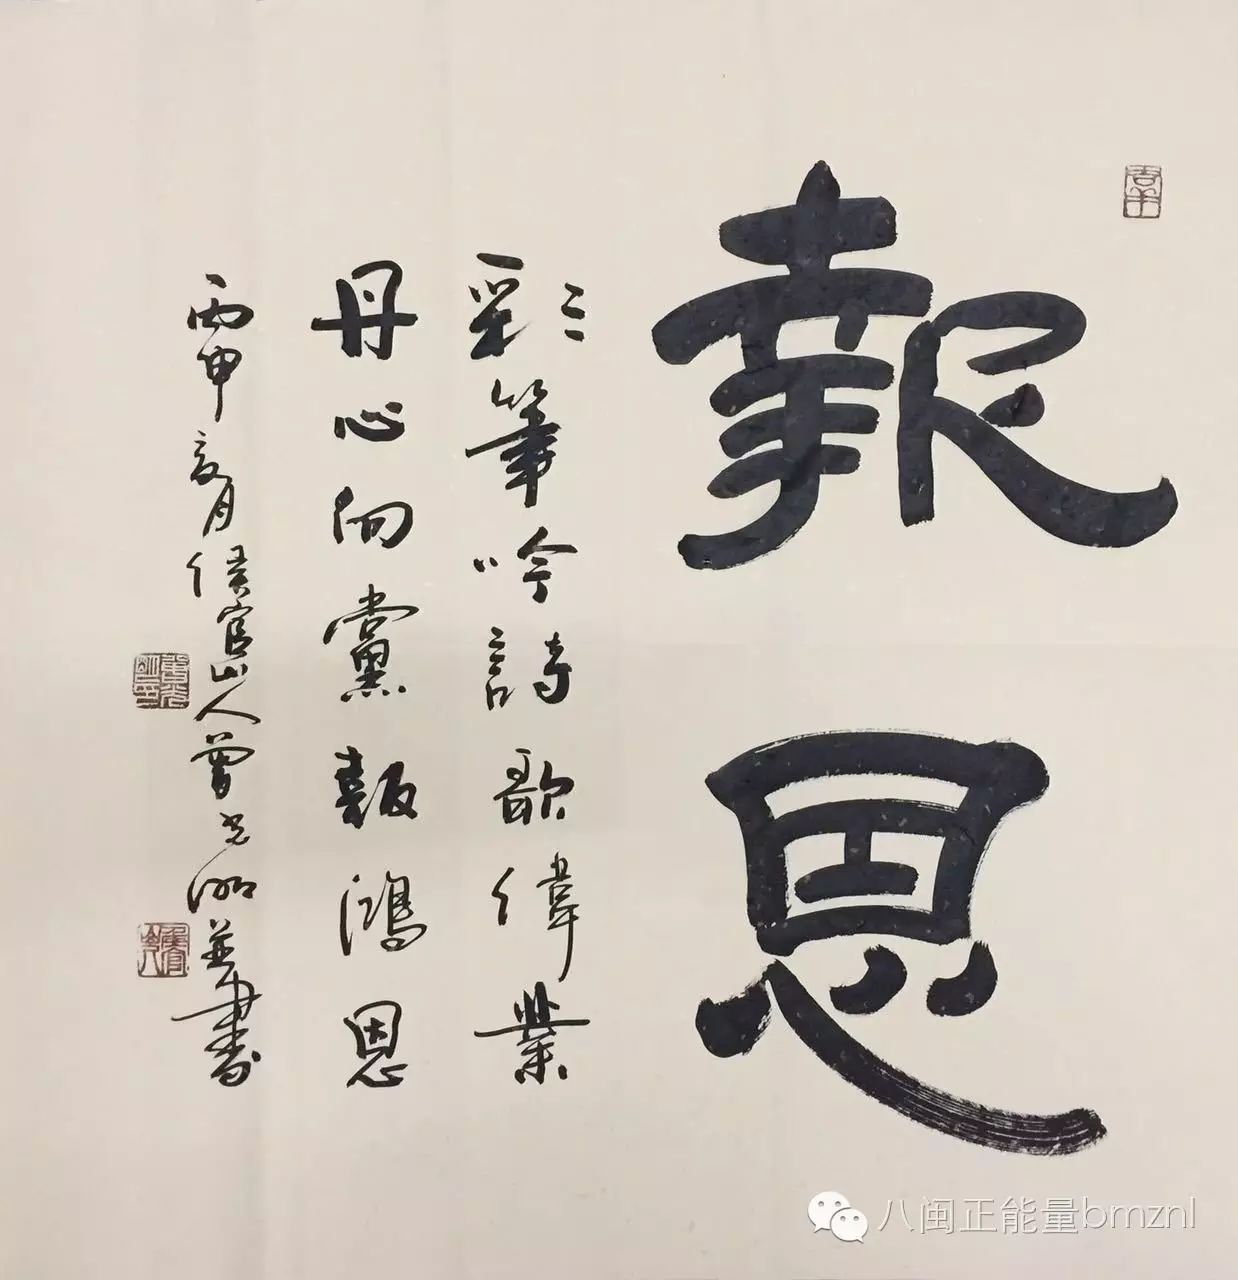 報恩
彩筆吟詩歌偉業
丹心向黨報鴻恩
丙申夏月侯官山人曾光並書
八闽正能量bmznl